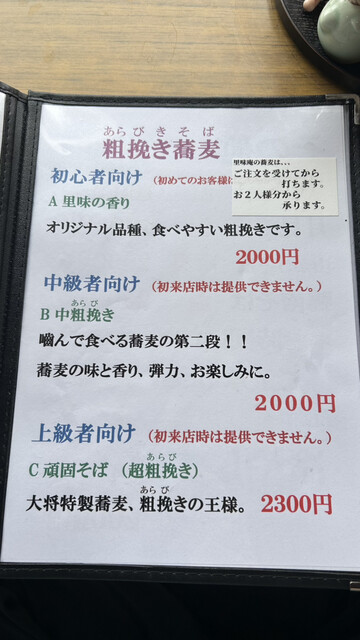 あらびきそば
粗挽き蕎麦
里味庵の蕎麦は、、、
ご注文を受けてから
打ちます。
お２人様分から
承ります。
初心者向け（初めてのお客様に
A 里味の香り
オリジナル品種、食べやすい粗挽きです。
2000円
中級者向け（初来店時は提供できません。）
あらび
B 中粗挽き
噛んで食べる蕎麦の第二段！！
蕎麦の味と香り、弾力、お楽しみに。
2000円
上級者向け（初来店時は提供できません。）
あらび
C 頑固そば （超粗挽き）
あらび
大将特製蕎麦、粗挽きの王様。 2300円